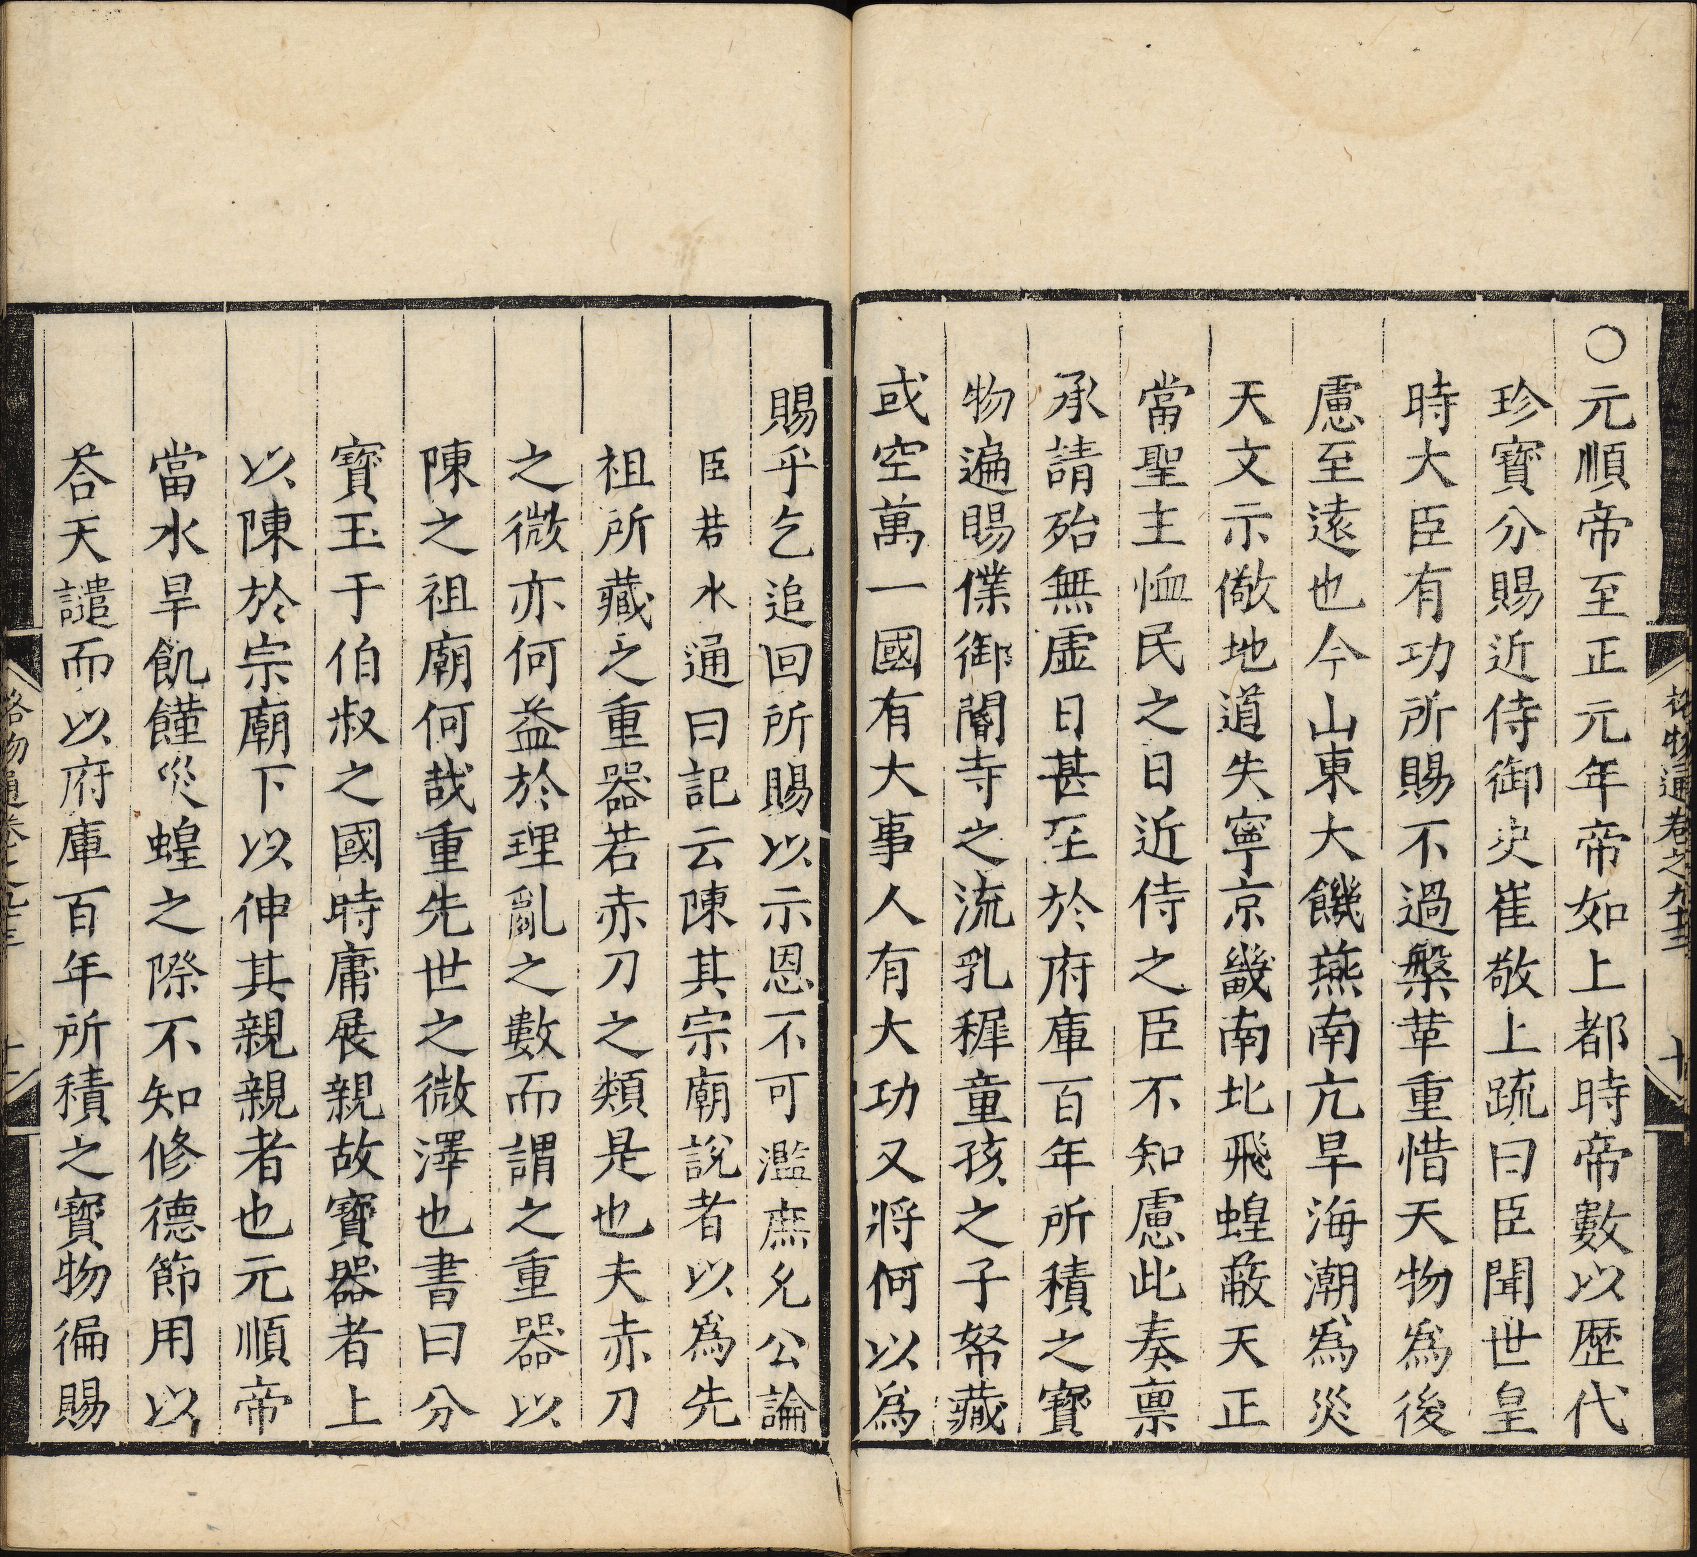 ○元順帝至正元年帝如上都時帝數以歷代
珍寶分賜近侍御史崔敬上疏曰臣聞世皇
時大臣有功所賜不過槃革重惜天物爲後
慮至遠也今山東大饑燕南亢旱海潮爲災
天文示儆地道失寧京畿南北飛蝗蔽天正
當聖主恤民之日近侍之臣不知慮此奏禀
承請殆無虛日甚至於府庫百年所積之寳
物遍賜僕御閽寺之流乳稺童孩之子帑藏
或空萬一國有大事人有大功又將何以爲
賜乎乞追回所賜以示恩不可濫庶允公論
臣若水通曰記云陳其宗廟說者以爲先
祖所藏之重器若赤刀之類是也夫赤刀
之微亦何益於理亂之數而謂之重器以
陳之祖廟何哉重先世之微澤也書曰分
寳玉于伯叔之國時庸展親故寳器者上
以陳於宗廟下以伸其親親者也元順帝
當水旱飢饉災蝗之際不知修德節用以
荅天譴而以府庫百年所積之寳物徧賜
格物通卷之九十三
十